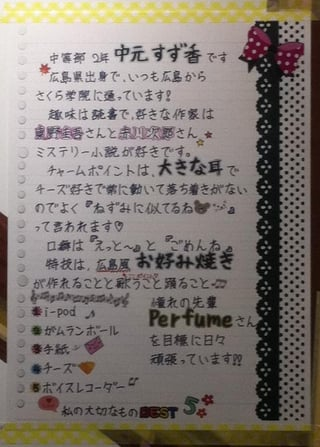 中等部 2年 中元すず香です
広島県出身で、いつも広島から
さくら学院に通っています!
趣味は読書で、好きな作家は
東野圭吾さんと赤川次郎さん
ミステリー小説が好きです。
チャームポイントは、大きな耳で
チーズ好きで常に動いて落ち着きがない
のでよく『ねずみに似てるね』
って言われます♡
口癖は『えっと〜』と『ごめんね』
特技は、広島風お好み焼き
が作れることと歌うこと踊ること♫
憧れの先輩
Perfumeさん
を目標に日々
頑張っています!!
1 i-pod ♪
2 ガムランボール
3 手紙
4 チーズ
5 ボイスレコーダー
私の大切なもの BEST 5